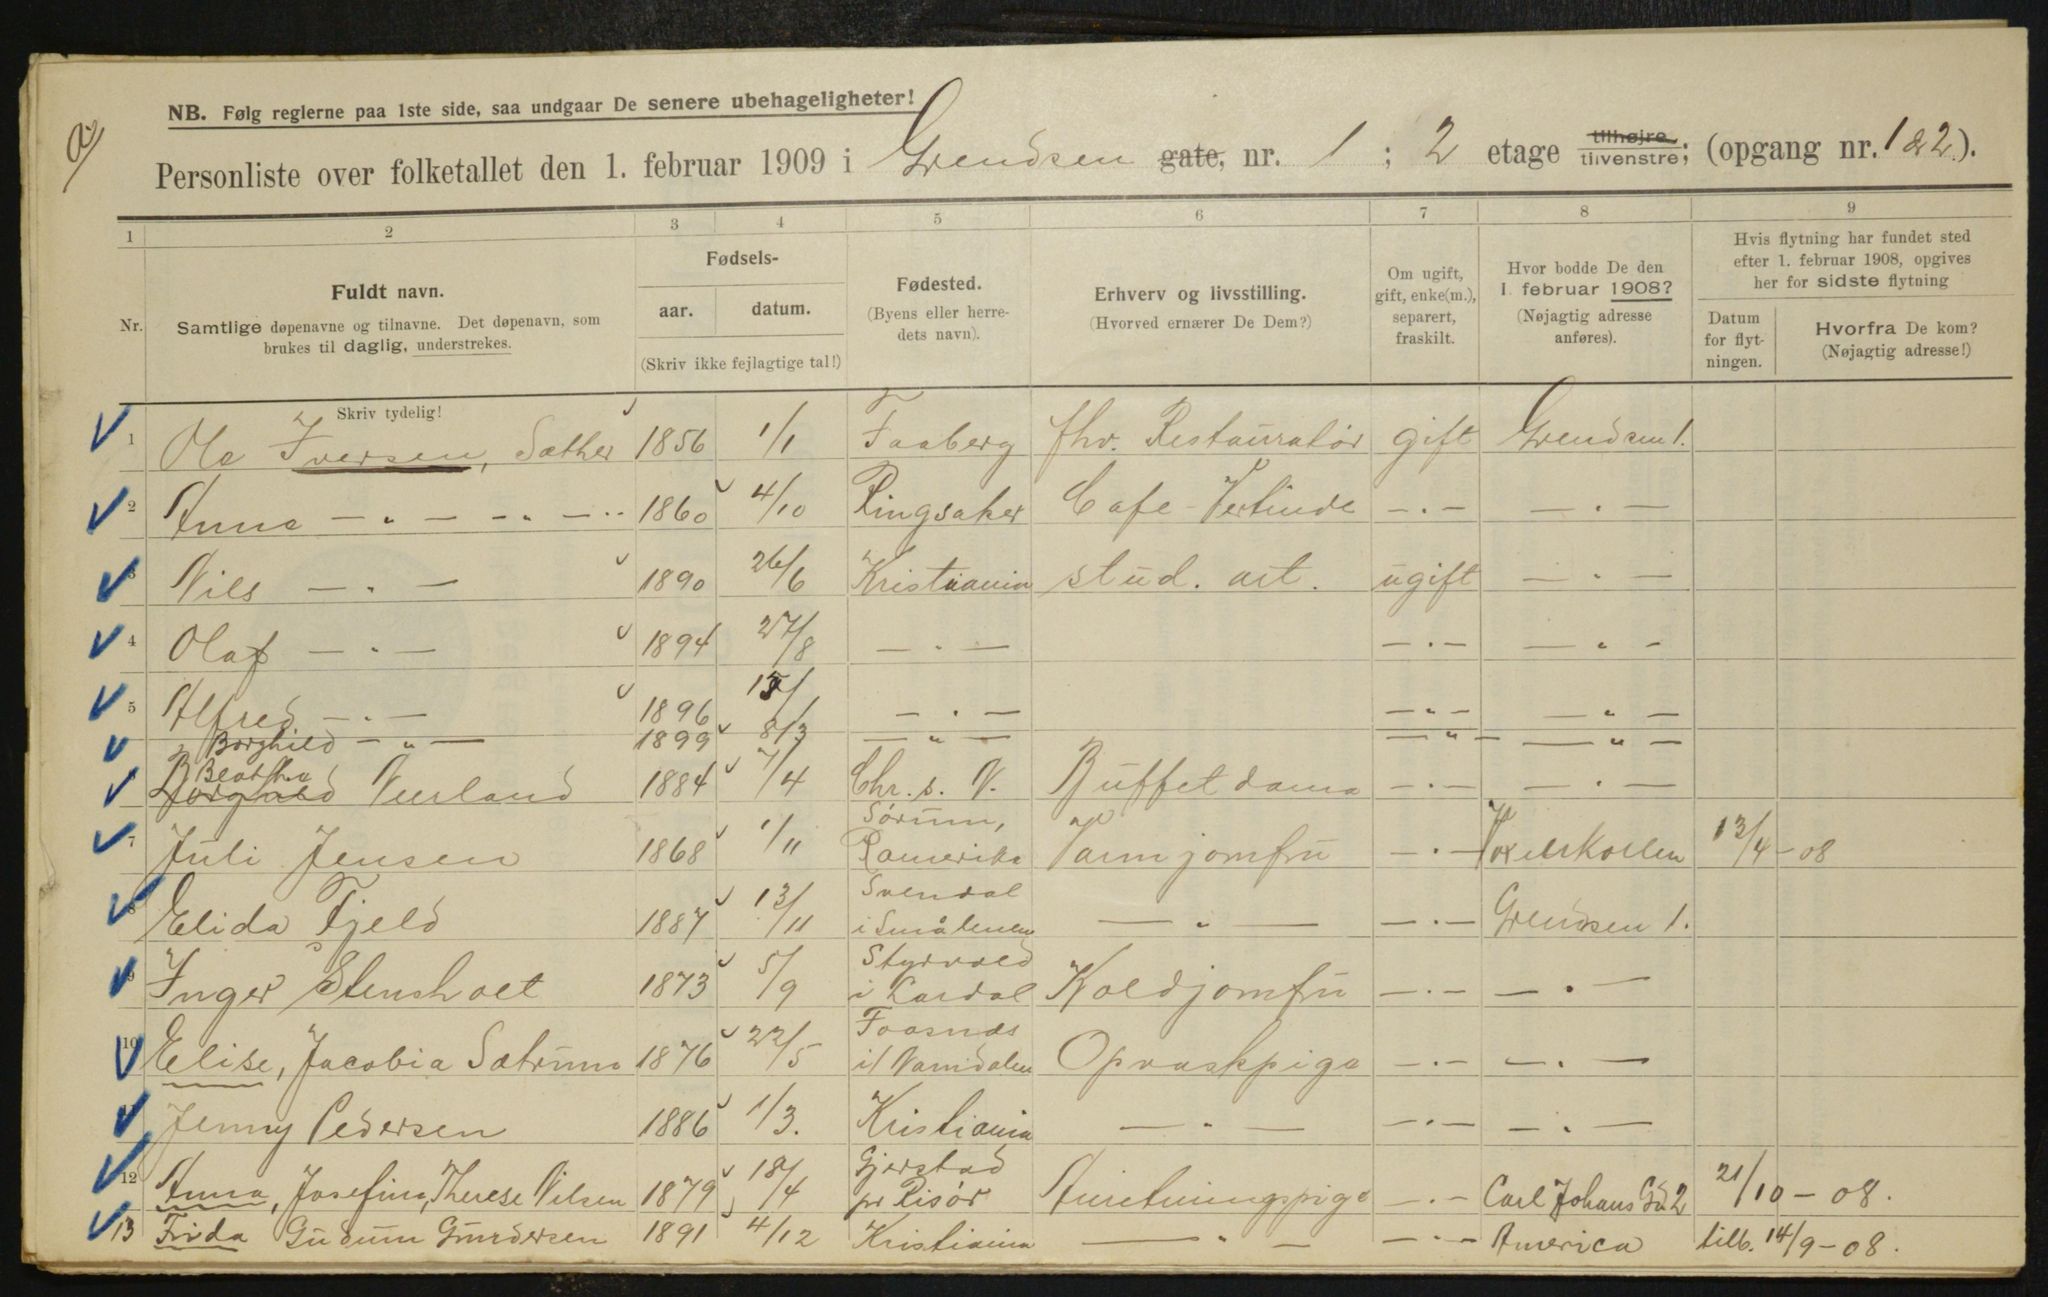 NB. Følg reglerne paa 1ste side, saa undgaar De senere ubehageligheter!
Personliste over folketallet den 1. februar 1909 i Grendsen gate, nr. 1 ; 2 etage tilhøjre tilvenstre; (opgang nr. 1 & 2).
1 2 3 4 5 6 7 8 9
Nr.
Fuldt navn.
Samtlige døpenavne og tilnavne. Det døpenavn, som
brukes til daglig, understrekes.
Fødsels-
aar. datum.
(Skriv ikke fejlagtige tal!)
Fødested.
(Byens eller herre-
dets navn).
Erhverv og livsstilling.
(Hvorved ernærer De Dem?)
Om ugift,
gift, enke(m.),
separert,
fraskilt.
Hvor bodde De den
1 februar 1908?
(Nøjagtig adresse
anføres).
Hvis flytning har fundet sted
efter 1. februar 1908, opgives
her for sidste flytning
Datum
for flyt-
ningen.
Hvorfra De kom?
(Nøjagtig adresse!)
Skriv tydelig!
1 Ole Iversen, Sæther 1856 1/1 Faaberg fhv. Restauratør gift Grendsen 1.
2 Anne — " — — " — 1860 4/10 Ringsaker Cafe-Vertinde — " — — " —
3 Nils — " — 1890 26/6 Kristiania stud. art. ugift — " —
4 Olaf — " — 1894 27/8 — " — — " — — " —
5 Alfred — " — 1896 15/1 — " — — " — — " —
Borghild — " — 1899 8/3 — " — — " — — " —
Beatha Veerland 1884 7/4 Chr. s. N. Buffetdame — " — — " —
7 Juli Jensen 1868 1/11 Sørum, Romerike Varmjomfru — " — Voxenkollen 13/4 – 08
8 Elida Fjeld 1887 13/11 Svendal i Smålenen — " — — " — Grendsen 1.
9 Inger Stensholt 1873 5/9 Styrvold i Lardal Koldjomfru — " — — " —
10 Elise, Jacobia Sætrum 1876 22/5 Foosnæs i/ Namdalen Opvaskpige — " — — " —
11 Jenny Pedersen 1886 1/3. Kristiania — " — — " — — " —
12 Anna, Josefine, Therese Nilsen 1879 18/4 Gjerstad pr Risør Anretningspige — " — Carl Johans Gd 2 21/10 – 08.
13 Frida Gudrun Gundersen 1891 4/12 Kristiania — " — — " — America tilb. 14/9 – 08.